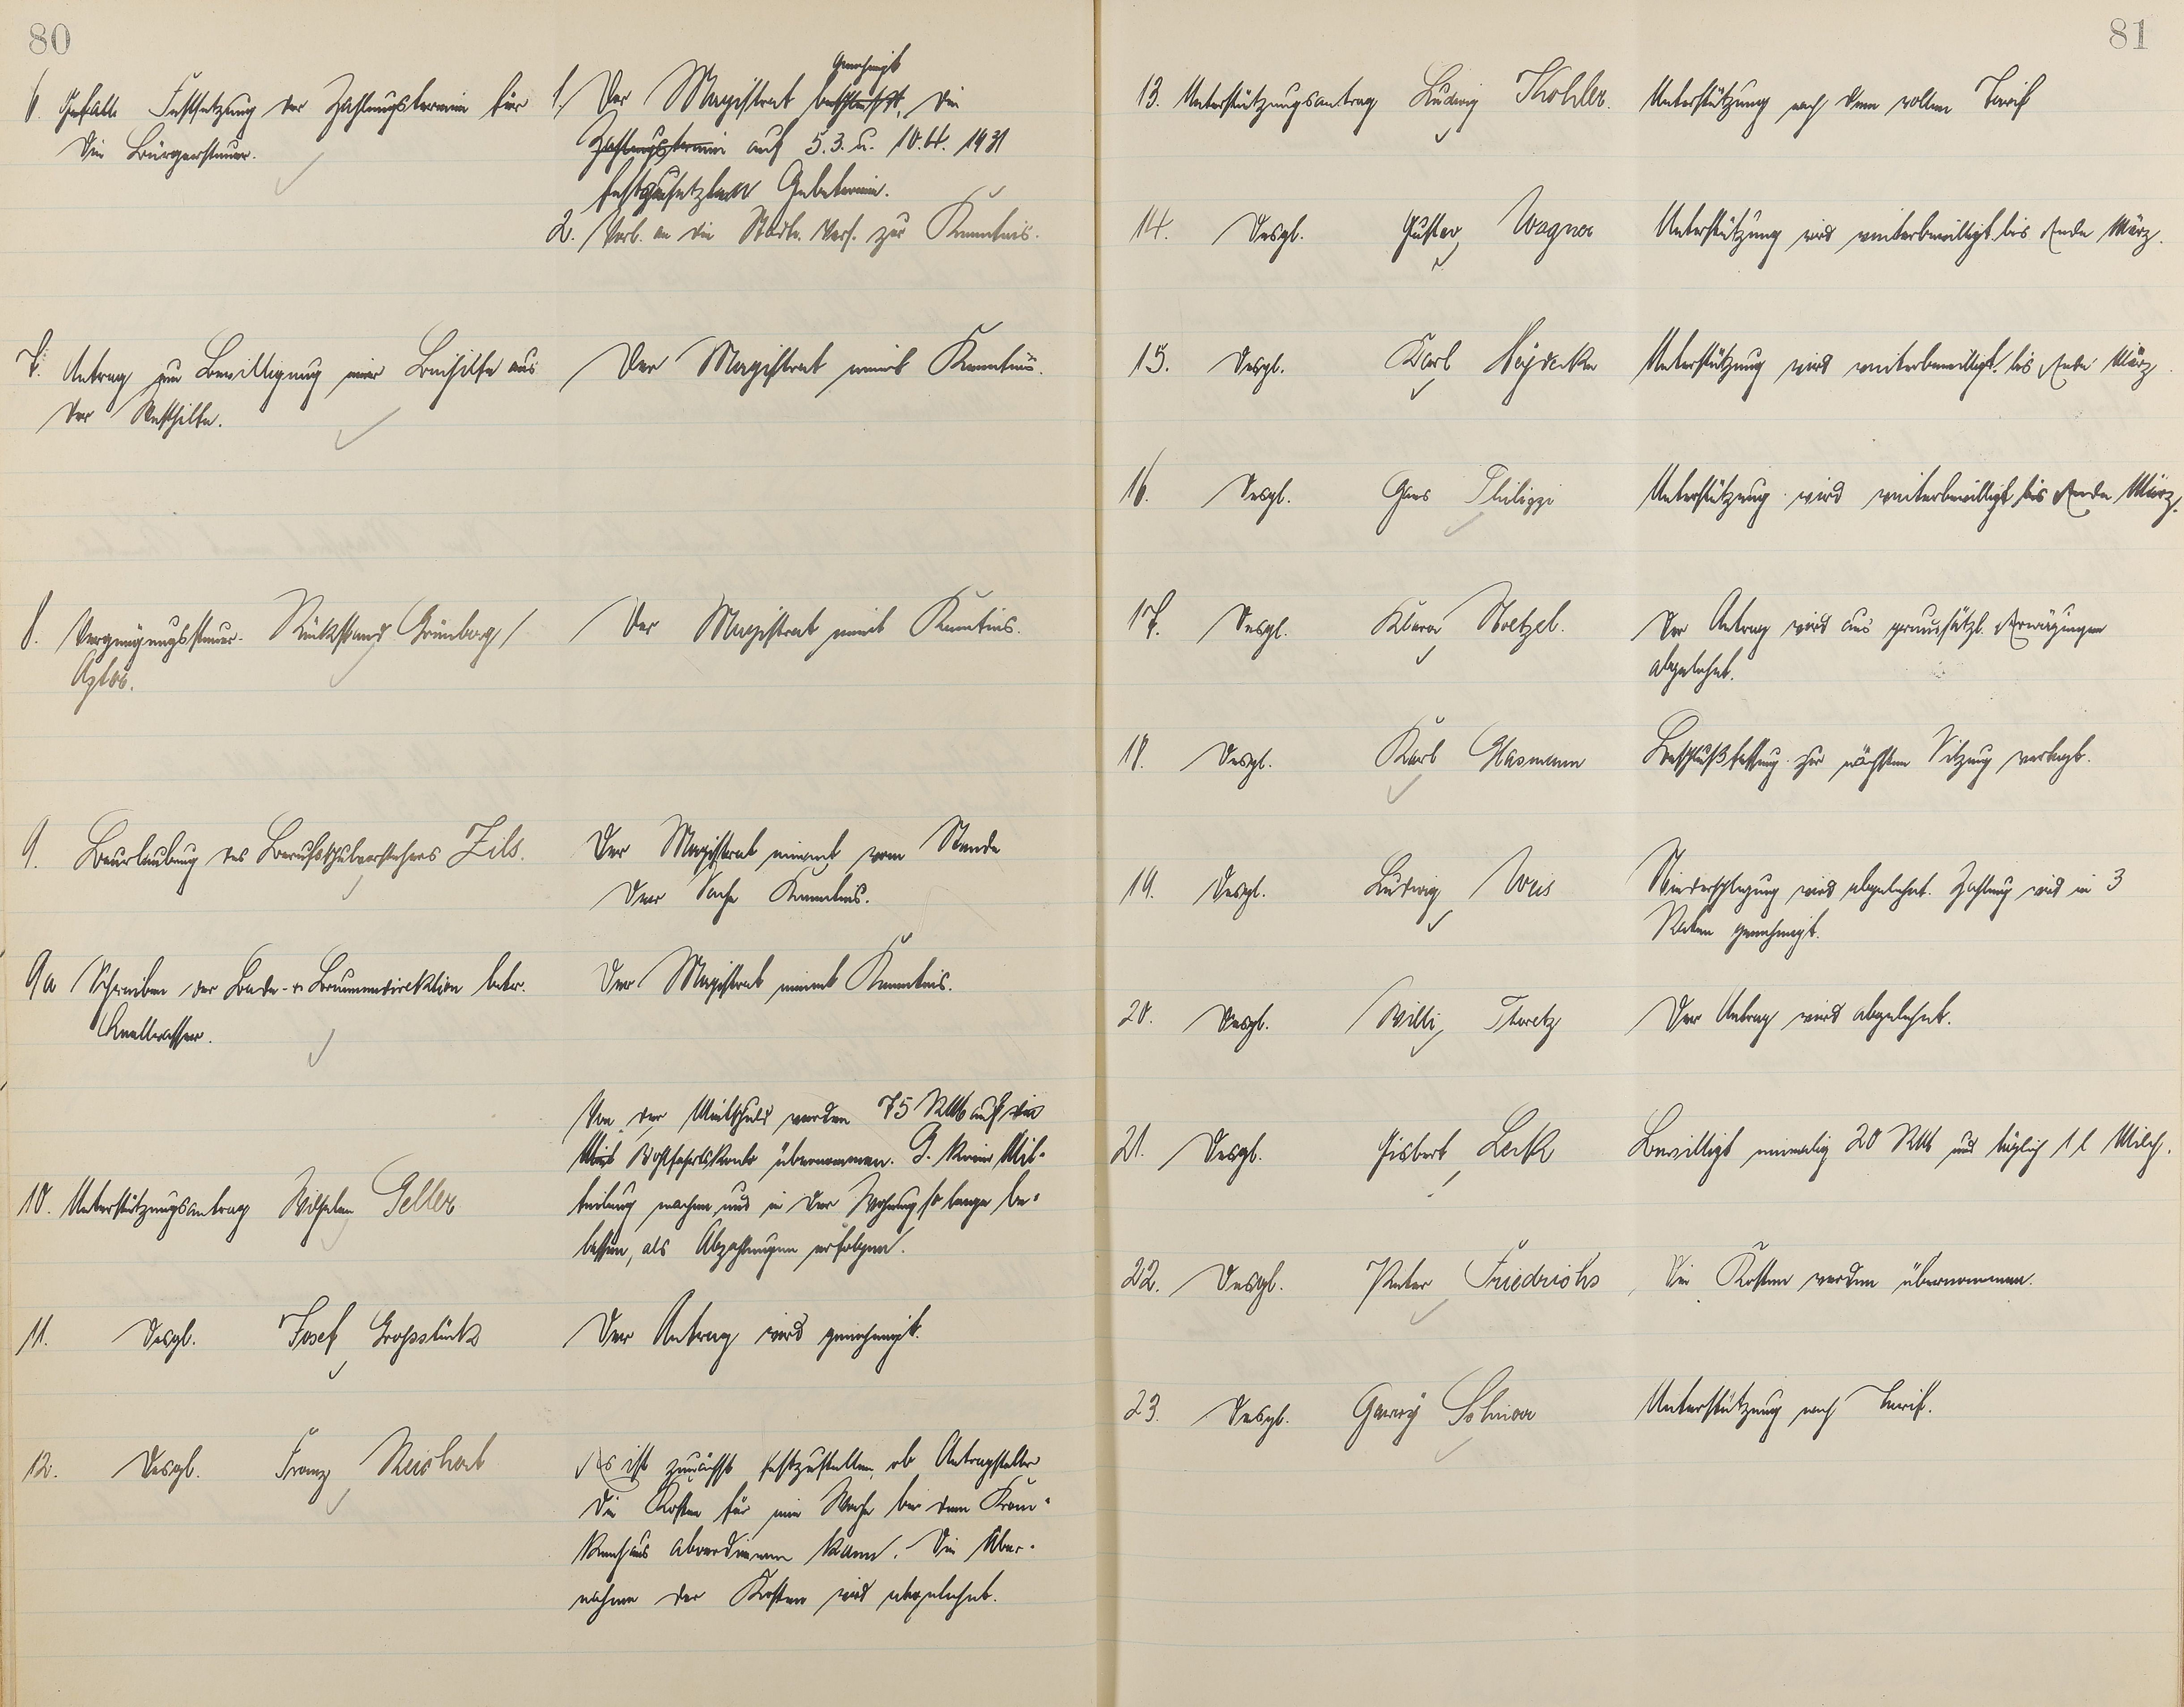 80
6. Festsetzung der Zahlungstermine für
die Bürgersteuer.
genehmigt
1. Der Magistrat beschließt, die
Zahlungstermine auf 5.3. u. 10.4. 1931
festgesetzten Hebetermine.
2. Vorl. an die Stadtv. Vers. zur Kenntnis.
7. Antrag zur Bewilligung einer Beihilfe aus
der Westhilfe.
Der Magistrat nimmt Kenntnis.
8. Vergnügungssteuer-Rückstand Grünberg/
Der Magistrat nimmt Kenntnis.
9. Beurlaubung des Berufsschulvorstehers Zils.
Der Magistrat nimmt vom Stande
der Sache Kenntnis.
9a Schreiben der Bade- u. Brunnendirektion betr.
Quellwasser.
Der Magistrat nimmt Kenntnis.
Von der Mietschuld werden 75 RM auf das
Wohlfahrtskonto übernommen. G. keine Mit-
teilung machen und in der Wohnung so lange be-
lassen, als Abzahlungen erfolgen.
10. Unterstützungsantrag Wilhelm Geller
11. Desgl. Josef Grossstück
Der Antrag wird genehmigt.
12. Desgl. Franz Reichert
Es ist zunächst festzustellen, ob Antragsteller
die Kosten für eine Woche bei dem Kran-
kenhaus abverdienen kann. Die Über-
nahme der Kosten wird abgelehnt.
81
13. Unterstützungsantrag Ludwig Kohler.
Unterstützung nach dem vollen Tarif
14. Desgl. Gustav Wagner
Unterstützung wird weiterbewilligt bis Ende März.
15. Desgl. Karl Heydecke
Unterstützung wird weiterbewilligt bis Ende März.
16. Desgl. Philippi
Unterstützung wird weiterbewilligt bis Ende März.
17. Desgl. Klara Stoetzel.
Der Antrag wird aus grundsätzl. Erwägungen
abgelehnt.
18. Desgl. Karl Glasmann
Beschlußfassung zur nächsten Sitzung vertagt.
19. Desgl. Ludwig Weis
Niederschlagung wird abgelehnt. Zahlung wird in 3
Raten genehmigt.
20. Desgl. Willi Thoretz
Der Antrag wird abgelehnt.
21. Desgl. Gisbert Leck
Bewilligt einmalig 20 RM und täglich 1 l Milch.
22. Desgl. Peter Friedrichs
Die Kosten werden übernommen.
23. Desgl. Georg
Unterstützung nach Tarif.